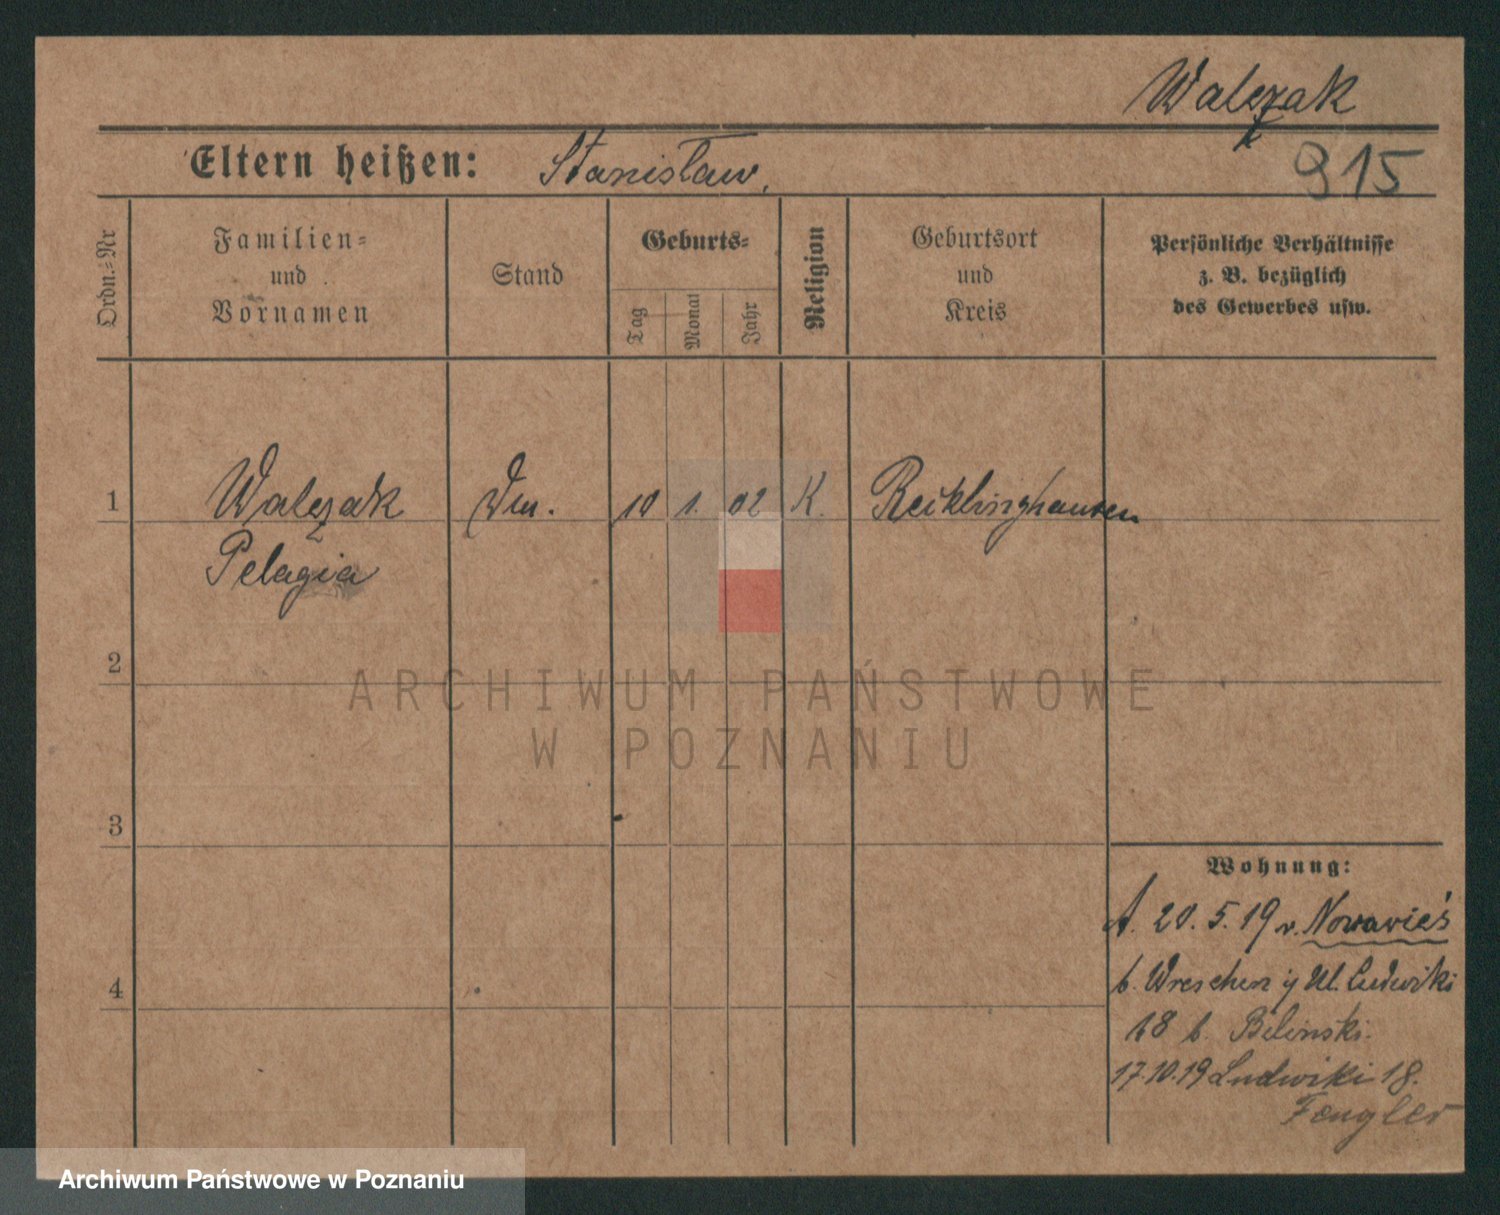 Walczak
Eltern heißen: Stanisław,
915
Ordn.=Nr
Familien=
und
Vornamen
Stand
Geburts=
Tag
Monat
Jahr
Religion
Geburtsort
und
Kreis
Persönliche Verhältnisse
z. B. bezüglich
des Gewerbes usw.
1 Walczak 10 1. 02 K. Recklinghausen
Pelagia
2
3
4
Wohnung:
A. 20. 5. 19 v. Nowawieś
b. Wreschen Ul. Ludwiki
18 b. Bilinski.
17.10.19 Ludwiki 18.
Fengler
ARCHIWUM PAŃSTWOWE
W POZNANIU
Archiwum Państwowe w Poznaniu